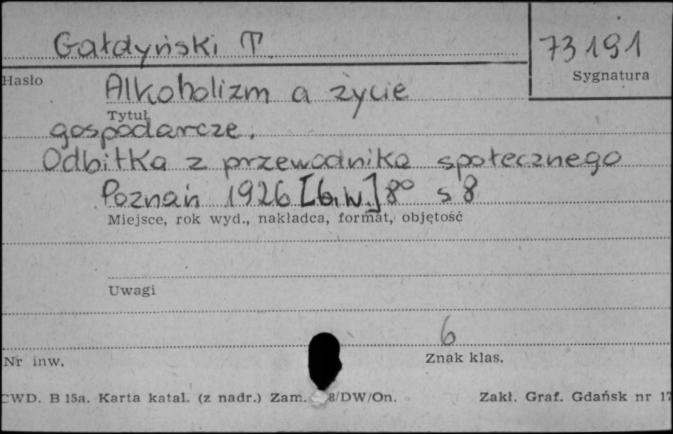 Gałdyński T.
73191
Hasło
Sygnatura
Alkoholizm a życie
Tytuł
gospodarcze.
Odbitka z przewodnika społecznego
Poznań 1926 [b.w.] 8° s 8
Miejsce, rok wyd., nakładca, format, objętość
Uwagi
6
Nr inw.
Znak klas.
CWD. B 15a. Karta katal. (z nadr.) Zam. 8/DW/On.
Zakł. Graf. Gdańsk nr 17